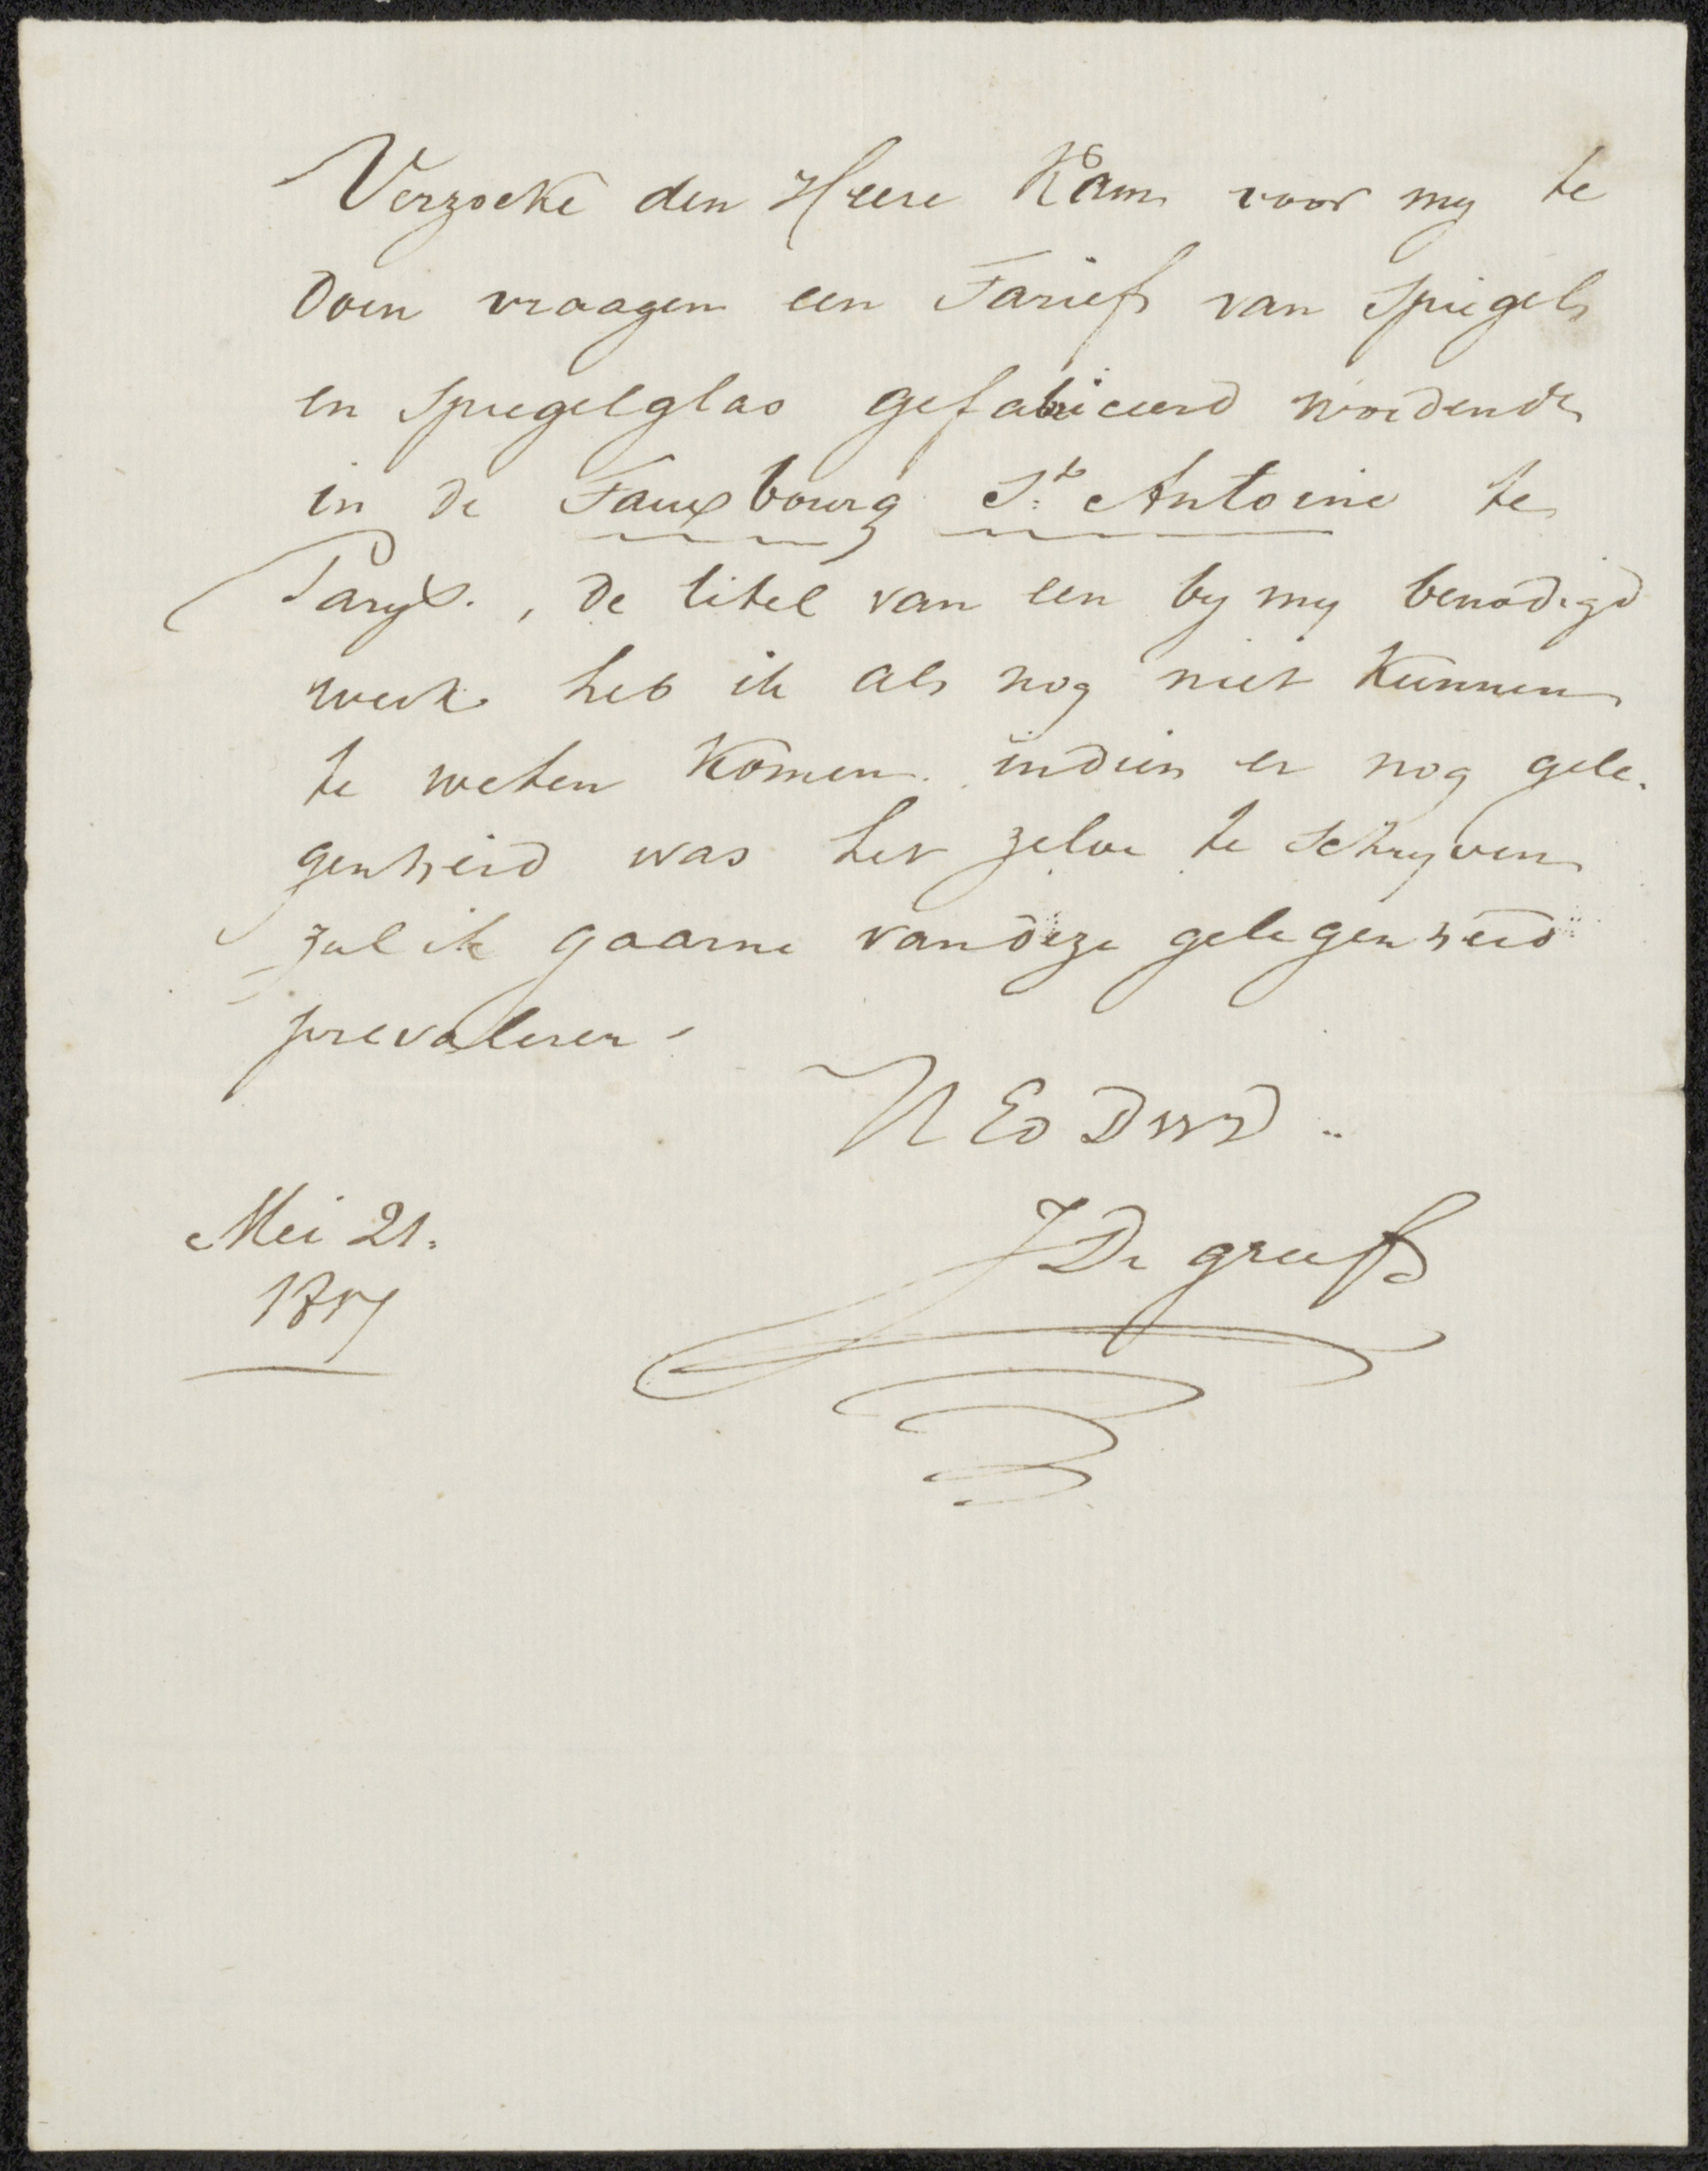 Verzoeke den Heere Kam voor my te
doen vraagen een Tarief van Spiegels
en Spiegelglas gefabriceerd wordende
in de Fauxbourg St. Antoine te
Parys., de titel van een by my benodigd
werk heb ik als nog niet kunnen
te weten komen. indien er nog gele.
genheid was het zelve te schryven
zal ik gaarne van deze gelegenheid
prevaleren.
UEd DWD..
J De Greef
Mei 21.
1817